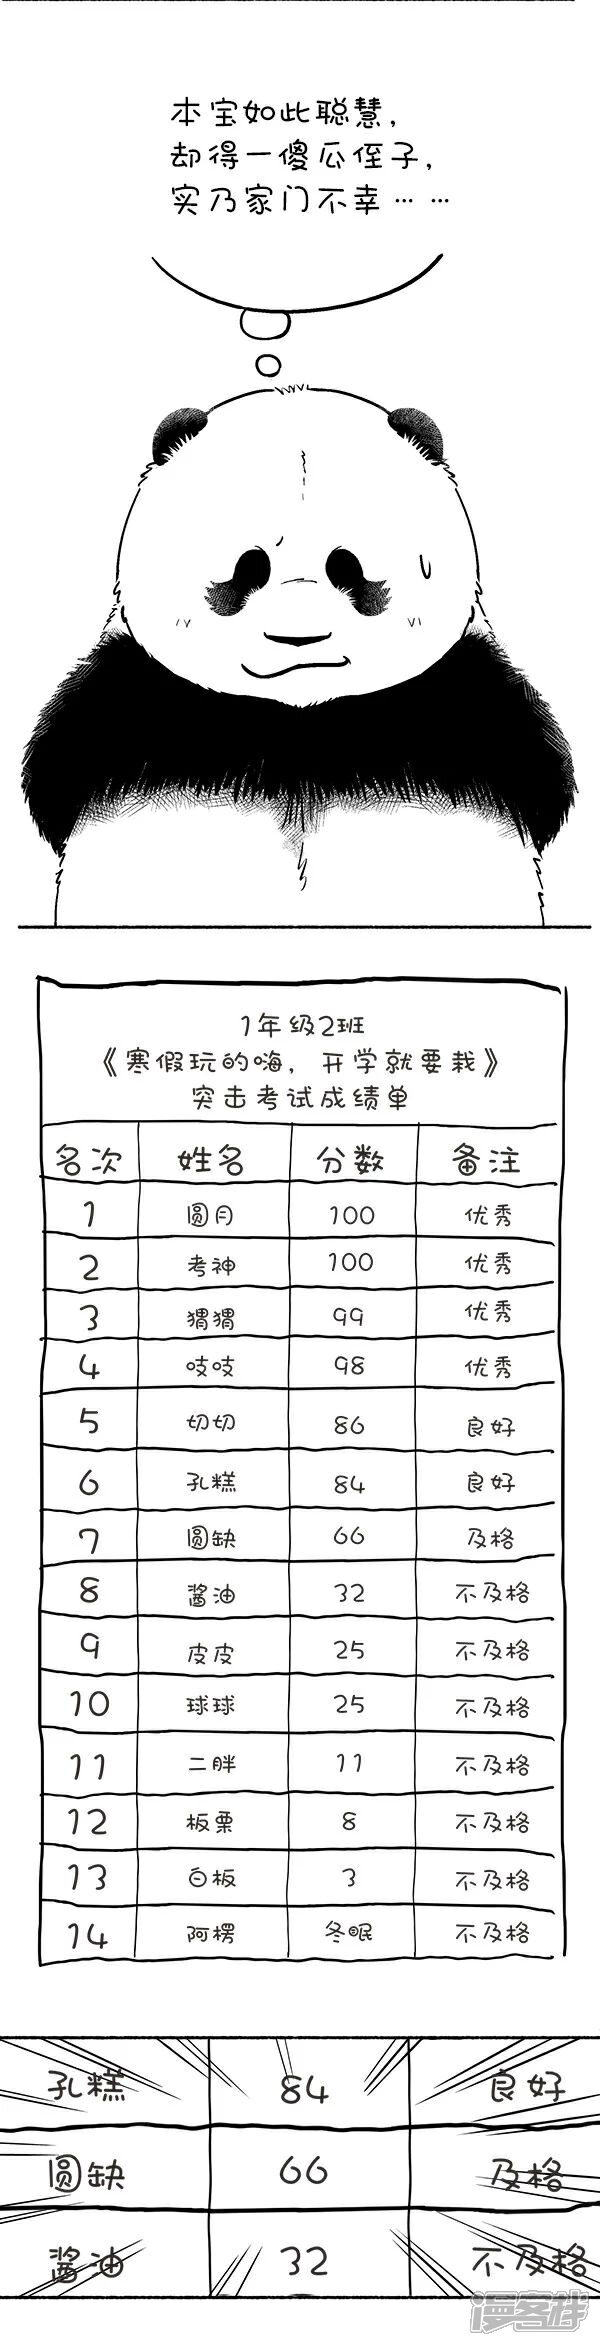 本宝如此聪慧，
却得一傻瓜侄子，
实乃家门不幸……
1年级2班
《寒假玩的嗨，开学就要栽》
突击考试成绩单
名次 姓名 分数 备注
1 圆月 100 优秀
2 考神 100 优秀
3 猬猬 99 优秀
4 吱吱 98 优秀
5 切切 86 良好
6 孔糕 84 良好
7 圆缺 66 及格
8 酱油 32 不及格
9 皮皮 25 不及格
10 球球 25 不及格
11 二胖 11 不及格
12 板栗 8 不及格
13 白板 3 不及格
14 阿楞 冬眠 不及格
孔糕 84 良好
圆缺 66 及格
酱油 32 不及格
漫客栈